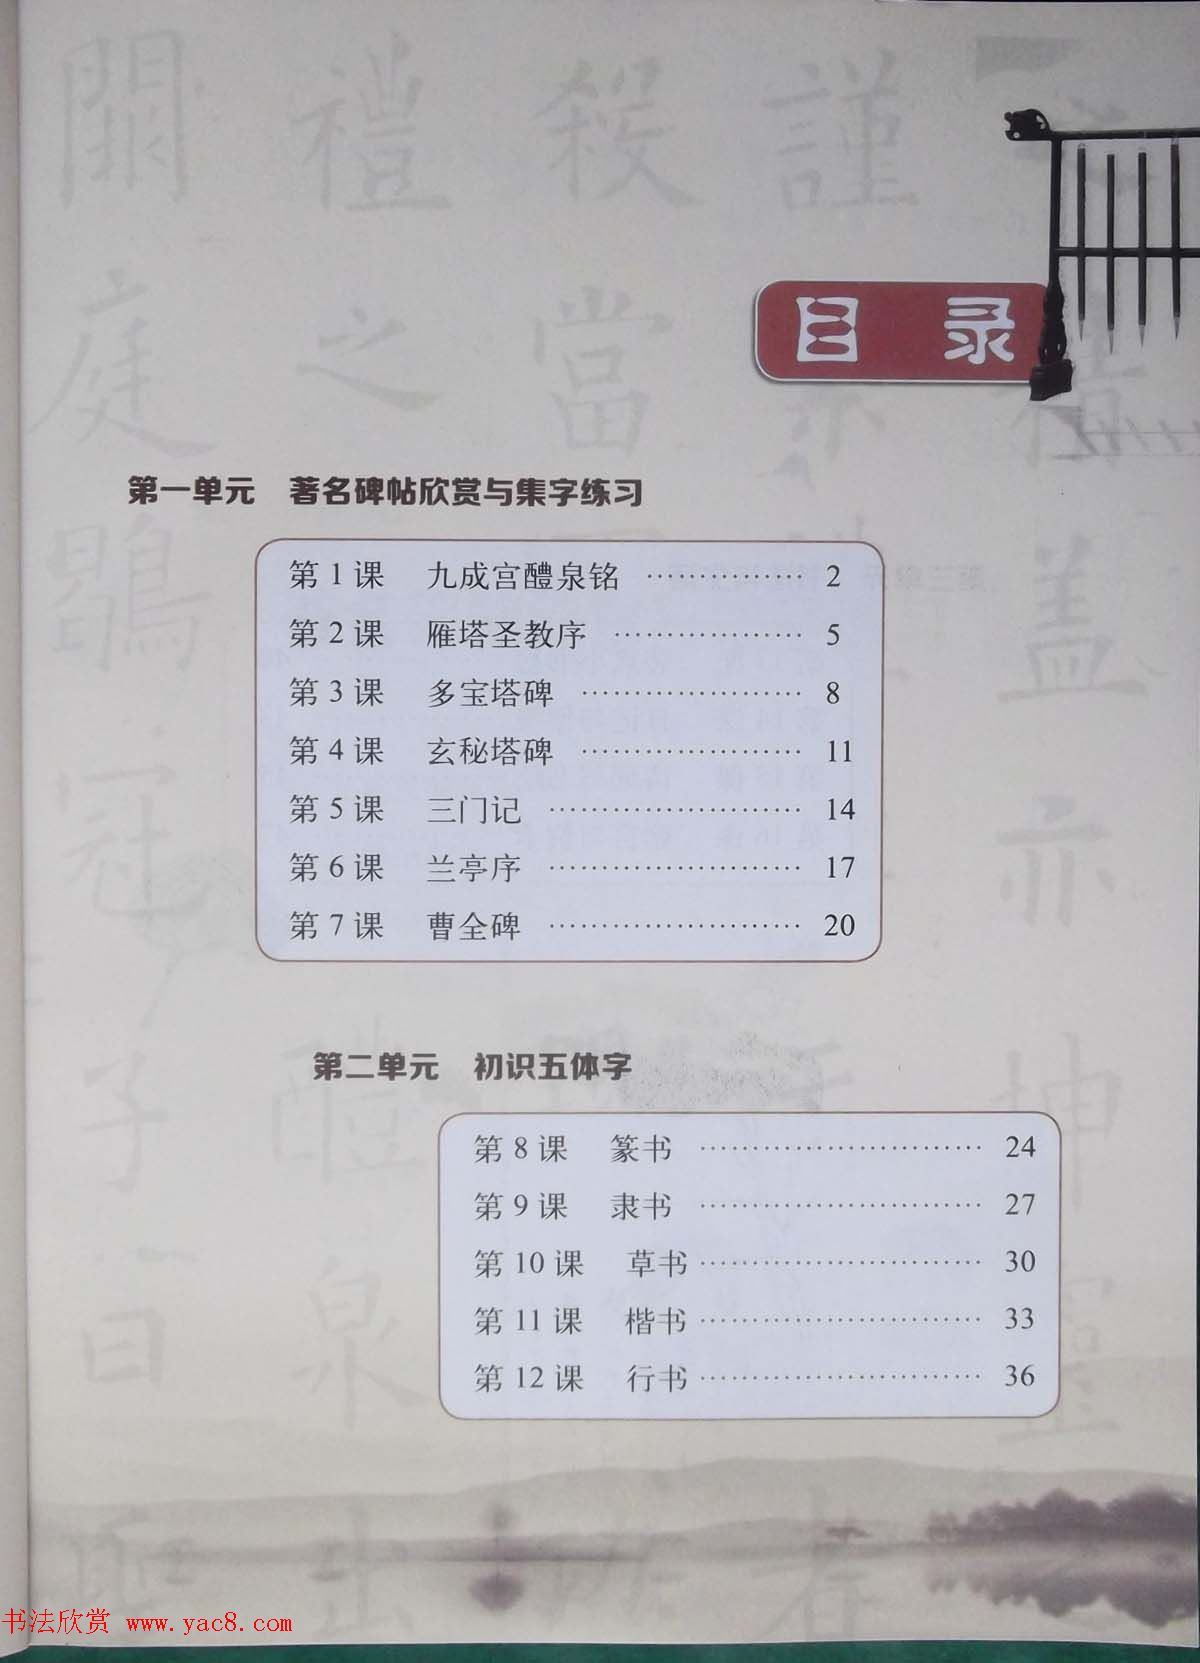 目 录
第一单元 著名碑帖欣赏与集字练习
第 1 课 九成宫醴泉铭 …………… 2
第 2 课 雁塔圣教序 ……………… 5
第 3 课 多宝塔碑 ………………… 8
第 4 课 玄秘塔碑 ………………… 11
第 5 课 三门记 …………………… 14
第 6 课 兰亭序 …………………… 17
第 7 课 曹全碑 …………………… 20
第二单元 初识五体字
第 8 课 篆书 ……………………… 24
第 9 课 隶书 ……………………… 27
第 10 课 草书 ……………………… 30
第 11 课 楷书 ……………………… 33
第 12 课 行书 ……………………… 36
书法欣赏 www.yac8.com